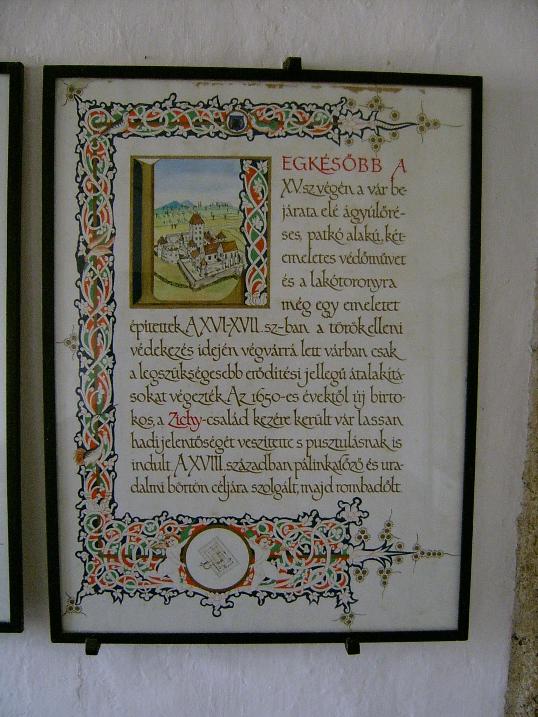 LEGKÉSŐBB A
XV.sz végén, a vár be-
járata elé ágyúlőré-
ses, patkó alakú, két-
emeletes védőművet
és a lakótoronyra
még egy emeletet
építettek. A XVI-XVII. sz-ban a török elleni
védekezés idején végvárrá lett várban csak
a legszükségesebb erődítési jellegű átalakítá-
sokat végezték. Az 1650-es évektől új birto-
kos, a Zichy-család kezére került vár lassan
hadijelentőségét veszítette s pusztulásnak is
indult. A XVIII. században pálinkafőző és ura-
dalmi börtön céljára szolgált, majd rombadőlt.